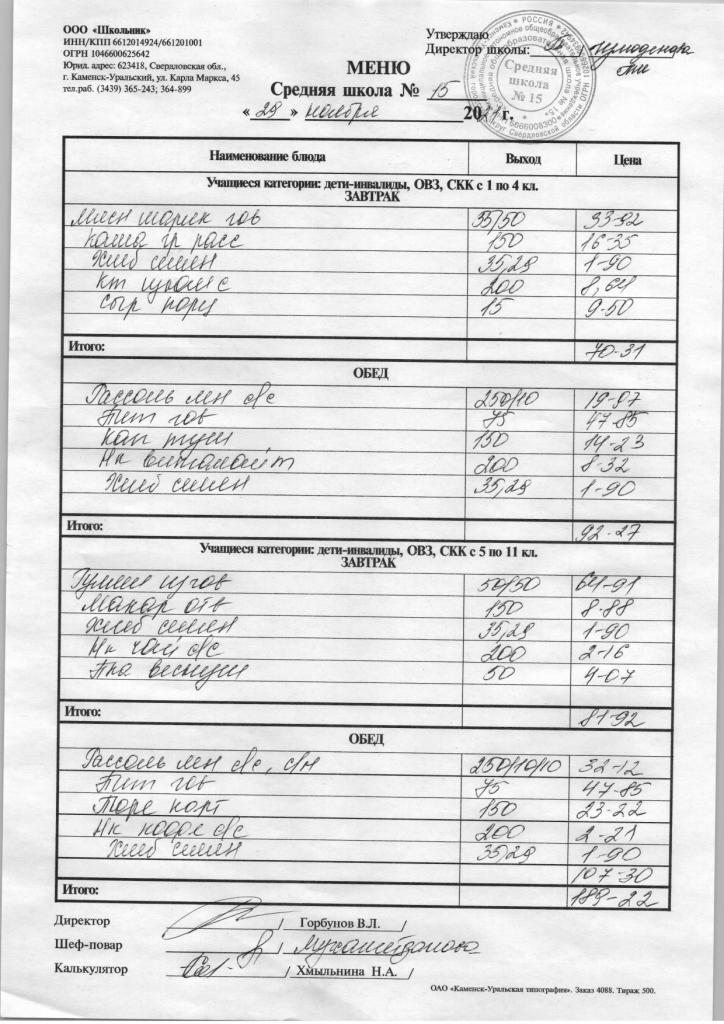 ООО «Школьник»
ИНН/КПП 6612014924/661201001
ОГРН 1046600625642
Юрид. адрес: 623418, Свердловская обл.,
г. Каменск-Уральский, ул. Карла Маркса, 45
тел.раб. (3439) 365-243; 364-899
Утверждаю
Директор школы:
Средняя школа № 15
МЕНЮ
Средняя школа № 15
« 29 » ноября 20 г.
Наименование блюда Выход Цена
Учащиеся категории: дети-инвалиды, ОВЗ, СКК с 1 по 4 кл.
ЗАВТРАК
гов 35/50 33-92
Каша гр расс 150 16-35
Хлеб 35,29 1-90
200 8,64
Сыр порц 15 9-50
Итого: 70-31
ОБЕД
Рассоль лен с/с 250/10 19-97
гов 75 47-85
Кап туш 150 14-23
Нк витолайт 200 8-32
Хлеб 35,29 1-90
Итого: 92-27
Учащиеся категории: дети-инвалиды, ОВЗ, СКК с 5 по 11 кл.
ЗАВТРАК
Гуляш 50/50 64-91
Макар отв 150 8-88
Хлеб 35,29 1-90
Нк чай с/с 200 2-16
50 4-07
Итого: 81-92
ОБЕД
Рассоль лен с/с, с/м 250/10/10 32-12
гов 75 47-85
Пюре карт 150 23-22
Нк 200 2-21
Хлеб 35,29 1-90
107-30
Итого: 189-22
Директор / Горбунов В.Л. /
Шеф-повар /
Калькулятор / Хмыльнина Н.А. /
ОАО «Каменск-Уральская типография». Заказ 4088. Тираж 500.